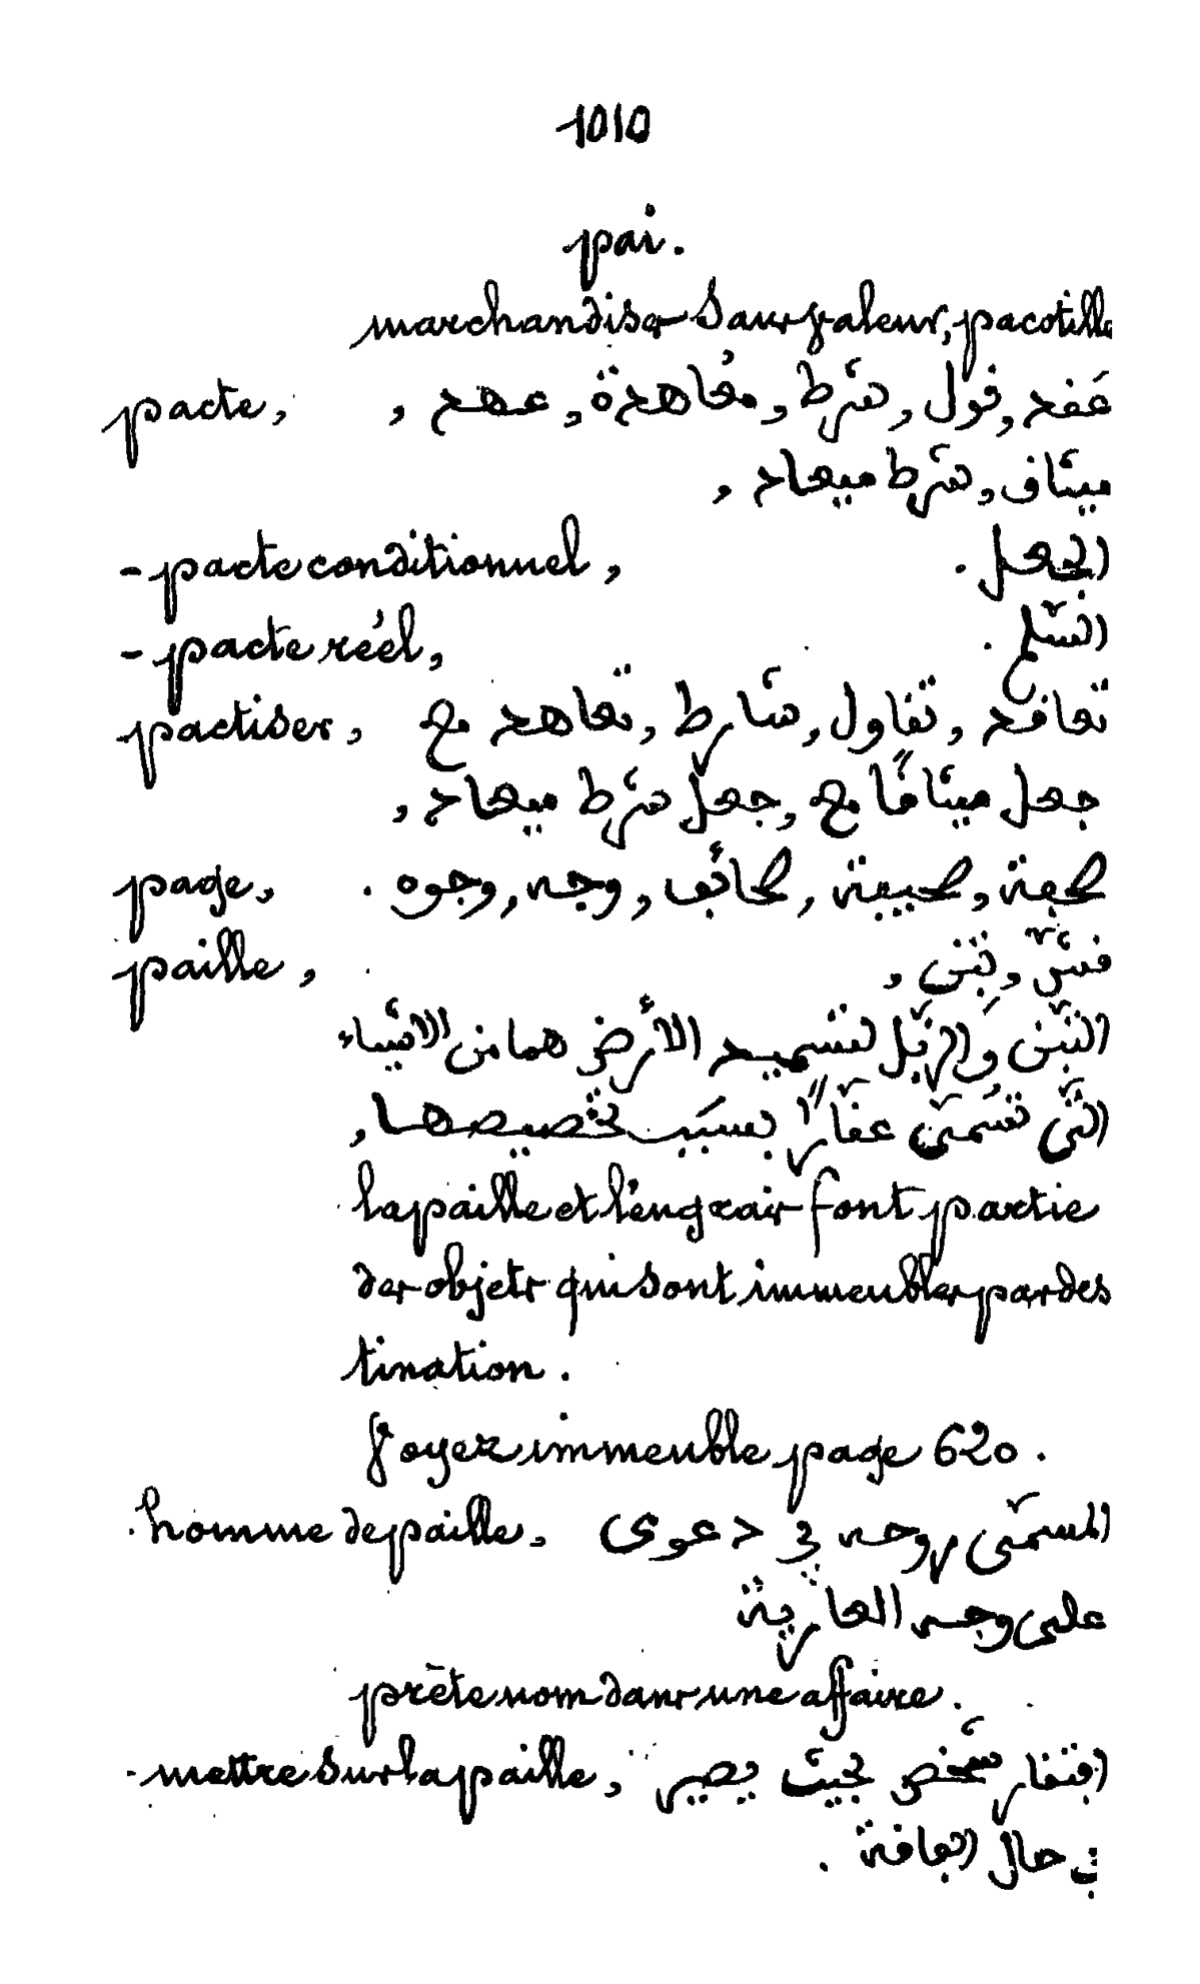 1010
pai.
marchandise sans valeur, pacotille
pacte, عَقد, قول, شرط, معَاهدة, عهد,
ميثاق, شرط ميعاد,
- pacte conditionnel, الجعل.
- pacte réel, السّلم.
pactiser, تعاقد, تقاول, شارط, تعاهد مع
جعل ميثاقًا مع, جعل شرط ميعاد,
page, صحفة, صحيفة, صحائف, وجه, وجوه.
paille, قشّ, تبن,
التبن وَالزّبل لتسميد الأرض هما من الاشياء
التّي تسُمّى عقارًا بسبَب تخصيصها,
la paille et l'engrais font partie
des objets qui sont immeubles par des
tination.
Voyez immeuble page 620.
homme de paille, المسمّى روحه في دعوى
على وجه العارية
prête nom dans une affaire.
- mettre sur la paille, افتقار شخص بحيث يصير
في حال الفاقة.